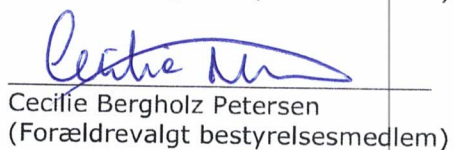 Cecilie Bergholz Petersen
(Forældrevalgt bestyrelsesmedlem)